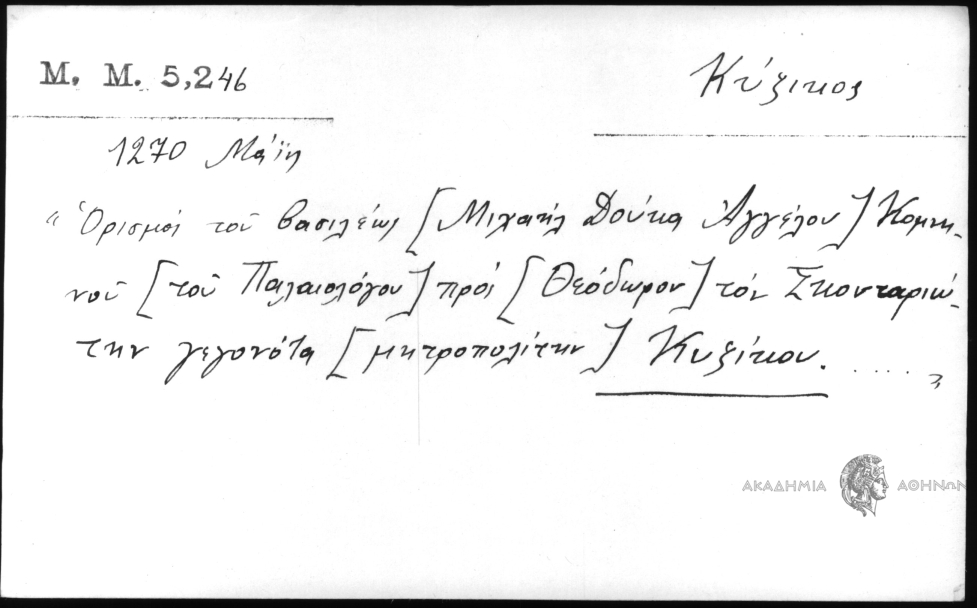 M. M. 5,246
Κύζικος
1270 Μάϊη
"Ὁρισμός τοῦ βασιλέως [Μιχαήλ Δούκα Ἀγγέλου] Κομνη-
νοῦ [τοῦ Παλαιολόγου] πρός [Θεόδωρον] τόν Σκουταριώ-
την γεγονότα [μητροπολίτην] Κυζίκου. ....."
ΑΚΑΔΗΜΙΑ ΑΘΗΝΩΝ